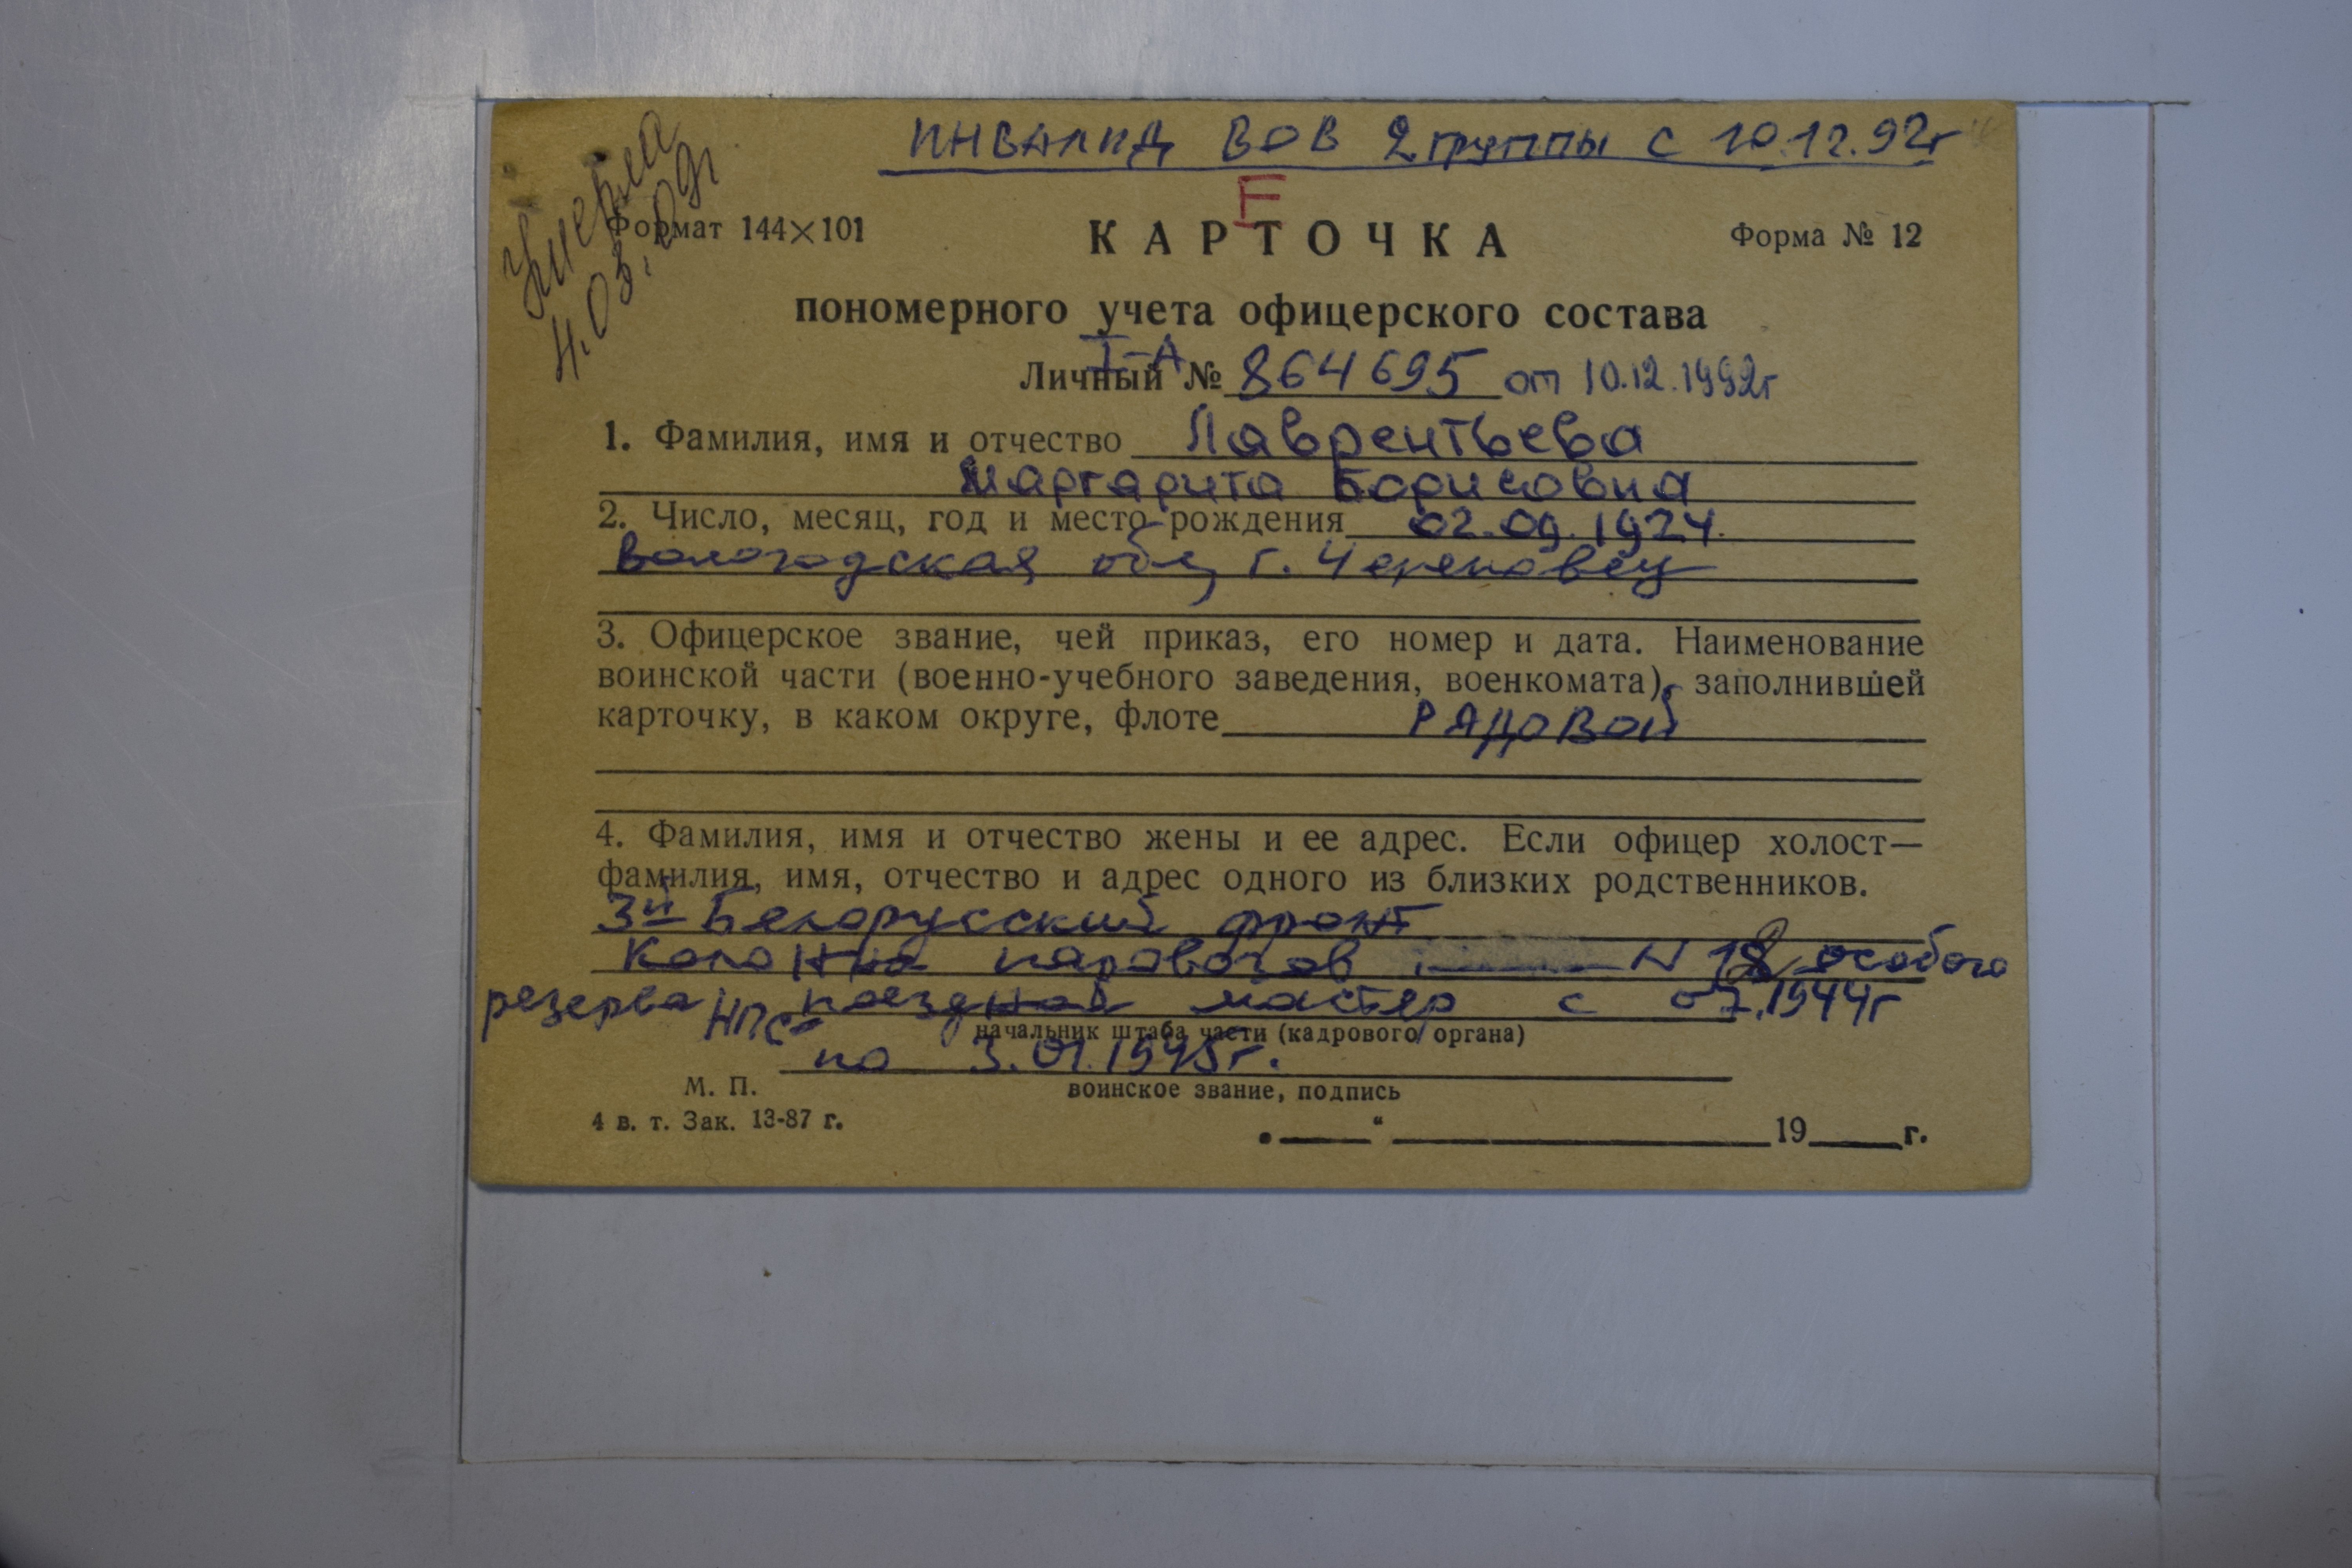 ИНВАЛИД ВОВ 2 группы с 10.12.92г
умерла
4.03.09г
F
Формат 144×101
КАРТОЧКА
Форма № 12
пономерного учета офицерского состава
I-А
Личный № 864695 от 10.12.1992г
1. Фамилия, имя и отчество Лаврентьева
Маргарита Борисовна
2. Число, месяц, год и место рождения 02.09.1924.
Вологодская обл, г. Череповец
3. Офицерское звание, чей приказ, его номер и дата. Наименование
воинской части (военно-учебного заведения, военкомата), заполнившей
карточку, в каком округе, флоте РЯДОВОЙ
4. Фамилия, имя и отчество жены и ее адрес. Если офицер холост—
фамилия, имя, отчество и адрес одного из близких родственников.
3й Белорусский фронт
Колонна паровозов N 18 особого
резерва НПС поездной мастер с 07.1944г
начальник штаба части (кадрового органа)
по 3.01.1945г.
М. П.
воинское звание, подпись
4 в. т. Зак. 13-87 г.
„ “ 19 г.